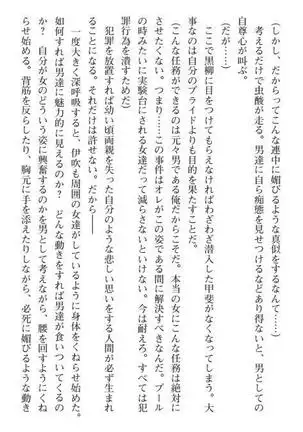 (しかし、だからってこんな連中に媚びるような真似をするなんて……)
考えるだけで虫酸が走る。男達に自ら痴態を見せつけるなどあり得ないと、男としての
自尊心が叫ぶ。
(だが――)
ここで黒柳に目をつけてもらえなければわざわざ潜入した甲斐がなくなってしまう。大
事なのは自分のプライドよりも目的を果たすことだ。
(こんな任務ができるのは元々男である俺だからこそだ。本当の女にこんな任務は絶対に
させたくない。この事件はオレがこの姿である間に解決すべきなんだ。プール
の時みたいに実験台にされる女達だって減らさないといけない。今は耐えろ。すべては犯
罪行為を潰すためだ)
犯罪を放置すれば幼い頃両親を失った自分のような悲しい思いをする人間が必ず生まれ
る――。それだけは許せない。だから――
一度大きく深呼吸すると、伊吹も周囲の女達がしているように身体をくねらせ始めた。
如何すれば男達に魅力的に見えるのか? どんな動きをすれば男達が食いついてくるの
か? 自分が女のどういう姿に興奮するのかを男として考えながら、腰を回すようにくね
らせ始める。背筋を反らしたり、胸元に手を添えたりしながら、必死に媚びるような動き